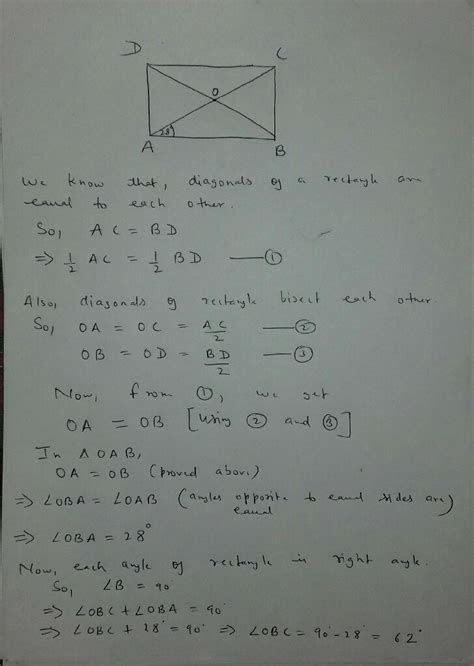 D C
O
28°
A B
We know that, diagonals of a rectangle are
equal to each other.
So, AC = BD
⇒ 1/2 AC = 1/2 BD —— ①
Also, diagonals of rectangle bisect each other.
So, OA = OC = AC/2 —— ②
OB = OD = BD/2 —— ③
Now, from ①, we get
OA = OB [Using ② and ③]
In △OAB,
OA = OB (proved above)
⇒ ∠OBA = ∠OAB (angles opposite to equal sides are)
equal
⇒ ∠OBA = 28°
Now, each angle of rectangle is right angle.
So, ∠B = 90°
⇒ ∠OBC + ∠OBA = 90°
⇒ ∠OBC + 28° = 90° ⇒ ∠OBC = 90° - 28° = 62°